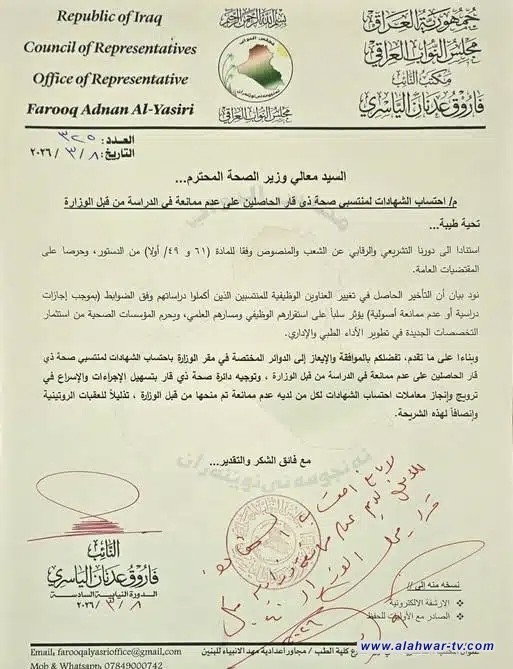 Republic of Iraq
Council of Representatives
Office of Representative
Farooq Adnan Al-Yasiri
بسم الله الرحمن الرحيم
مجلس النواب
مجلس النواب العراقي
جمهورية العراق
مجلس النواب العراقي
مكتب النائب
فاروق عدنان الياسري
العدد: ٣٢٥
التاريخ: ٢٠٢٦/٣/٨
السيد معالي وزير الصحة المحترم...
م/ احتساب الشهادات لمنتسبي صحة ذي قار الحاصلين على عدم ممانعة في الدراسة من قبل الوزارة
تحية طيبة...
استنادا الى دورنا التشريعي والرقابي عن الشعب والمنصوص وفقا للمادة (٦١ و ٤٩/ أولا) من الدستور، وحرصا على
المقتضيات العامة.
نود بيان أن التأخير الحاصل في تغيير العناوين الوظيفية للمنتسبين الذين أكملوا دراساتهم وفق الضوابط (بموجب إجازات
دراسية أو عدم ممانعة أصولية) يؤثر سلباً على استقرارهم الوظيفي ومسارهم العلمي، ويحرم المؤسسات الصحية من استثمار
التخصصات الجديدة في تطوير الأداء الطبي والإداري.
وبناءا على ما تقدم، تفضلكم بالموافقة والإيعاز إلى الدوائر المختصة في مقر الوزارة باحتساب الشهادات لمنتسبي صحة ذي
قار الحاصلين على عدم ممانعة في الدراسة من قبل الوزارة ، وتوجيه دائرة صحة ذي قار بتسهيل الإجراءات والإسراع في
ترويج وإنجاز معاملات احتساب الشهادات لكل من لديه عدم ممانعة تم منحها من قبل الوزارة ، تذليلاً للعقبات الروتينية
وإنصافاً لهذه الشريحة.
مع فائق الشكر والتقدير...
لا مانع
النائب
فاروق عدنان الياسري
الدورة النيابية السادسة
٢٠٢٦/٣/٨
نسخه منه إلى //
الارشفة الالكترونية
الصادر مع الأوليات للحفظ
كلية الطب / مجاور اعدادية مهد الانبياء للبنين
www.alahwar-tv.com
Email, farooqalyasrioffice@gmail.com
Mob & Whatsapp. 07849000742